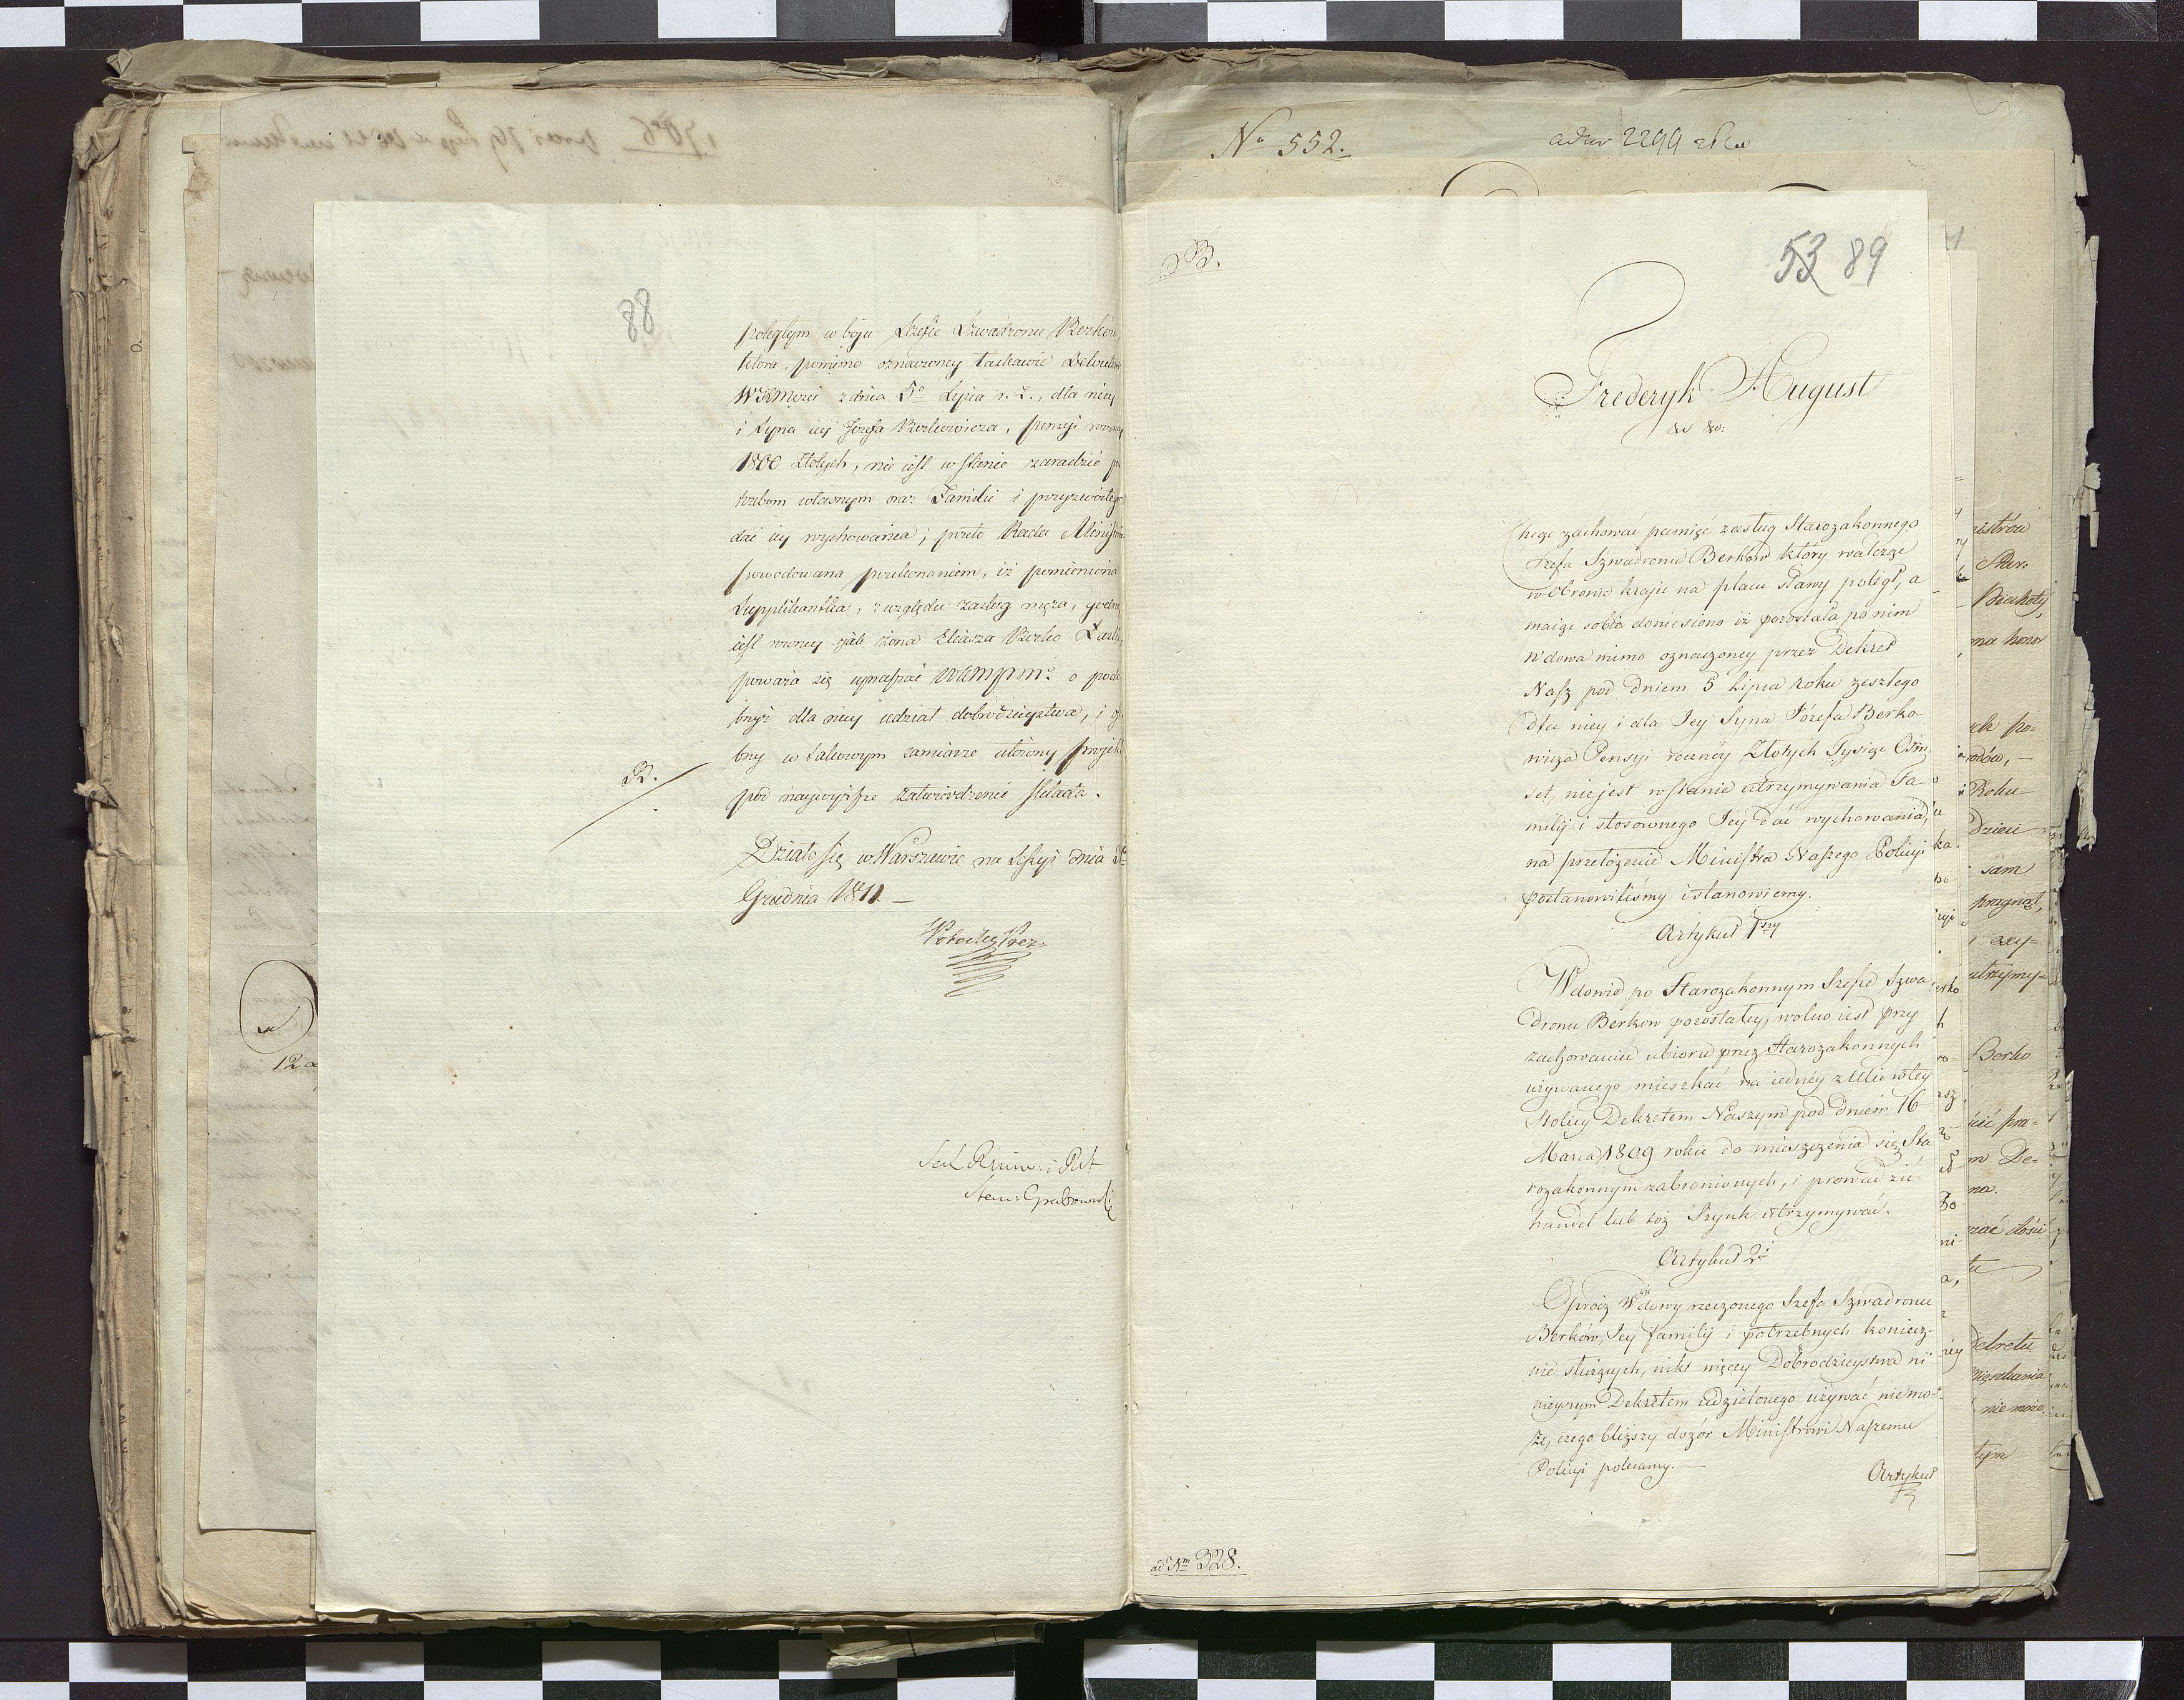 88
poległym w boju Szefie Szwadronu Berków,
która, pomimo oznaczoney łaskawie Dekretem
WKMości z dnia 5º Lipca r. z., dla niey
i Syna iey Jozefa Berkowicza, pensyi roczney
1800 Złotych, nie iest w stanie zaradzić po
trzebom własnym oraz Familii i przyzwoitego
dać iey wychowania; przeto Rada Ministrów
powodowana przekonaniem, iż pomieniona
Supplikantka, z względu zasług męża, godną
iest równey jak żona Eliasza Berko
poważa się upraszać WKMPM: o podo
bnyż dla niey udział dobrodzieystwa, i
bny w takowym zamiarze ułożony projekt
B.
pod naywyższe zatwierdzenie składa.
Działo się w Warszawie na Sessyi dnia
Grudnia 1811. —
Potocki Prez:
Sek
Stan: Grabowski
12
Nº 552.
2299
B.
53 89
Frederyk August
&c &c:
Chcąc zachować pamięć zasług Starozakonnego
Szefa Szwadronu Berków który walcząc
w Obronie kraju na placu sławy poległ, a
maiąc sobie doniesiono iż pozostała po nim
Wdowa mimo oznaczoney przez Dekret
Nasz pod dniem 5 Lipca Roku zeszłego
dla niey i dla Jey Syna Józefa Berko
wicza Pensyi roczney Złotych Tysiąc Ośm
set, niejest w stanie utrzymywania Fa-
milij i stosownego Jey dać wychowania,
na przełożenie Ministra Naszego Policyi
postanowiliśmy i stanowiemy.
Artykuł 1szy
Wdowie po Starozakonnym Szefie Szwa
dronu Berkow pozostałey, wolno iest przy
zachowaniu ubioru przez Starozakonnych
używanego mieszkać na iedney z Ulic w tey
Stolicy Dekretem Naszym pod dniem 16
Marca 1809 roku do mieszczenia się Sta
rozakonnym zabronionych, i prowadzić
handel lub też Szynk utrzymywać.
Artykuł 2i
Oprócz Wdowy rzeczonego Szefa Szwadronu
Berków, Jey familij i potrzebnych koniecz-
nie służących, nikt więcey Dobrodzieystwa ni-
nieyszym Dekretem udzielonego używać niemo-
że, czego bliższy dozór Ministrowi Naszemu
Policyi polecamy. —
Artykuł
ad Nm 328.